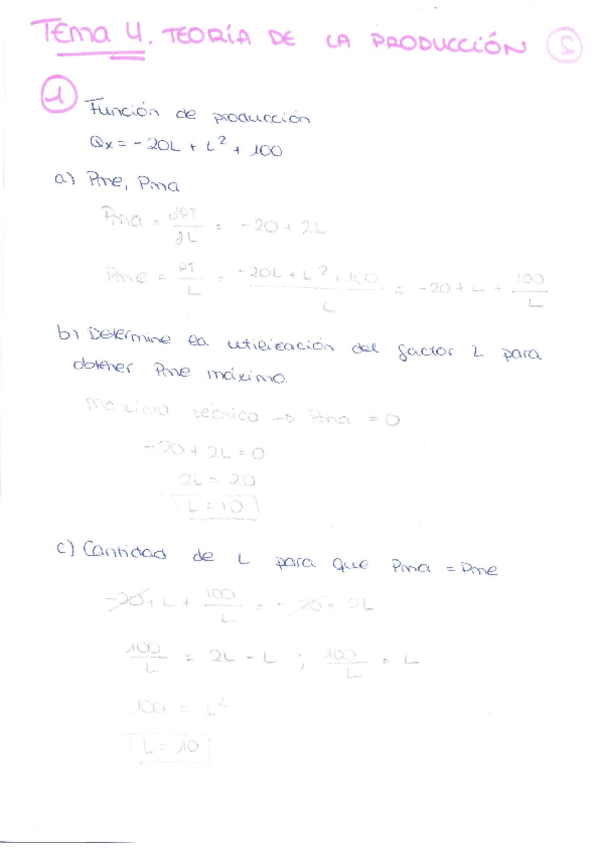 Tema 4. TEORÍA DE LA PRODUCCIÓN 5
1
Función de producción
Qx = -20L + L² + 100
a) Pme, Pma
Pma = ∂PT/∂L = -20 + 2L
Pme = PT/L = -20L + L² + 100/L = -20 + L + 100/L
b) Determine la utilización del factor L para
obtener Pme máximo.
Maximo técnico → Pma = 0
-20 + 2L = 0
2L = 20
L = 10
c) Cantidad de L para que Pma = Pme
-20 + L + 100/L = -20 + 2L
100/L = 2L - L ; 100/L = L
100 = L²
L = 10